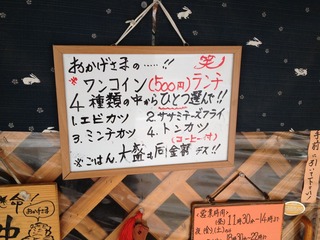 おかげさまの……!!
笑
*ワンコイン(500円)ランチ
4種類の中からひとつ選んで!!
1.エビカツ 2.ササミチーズフライ
3.ミンチカツ 4.トンカツ
(コーヒー付)
※ごはん、大盛も同金額デス!!
営業時間
(昼)11時30〜14時
夜(金)(土)のみ